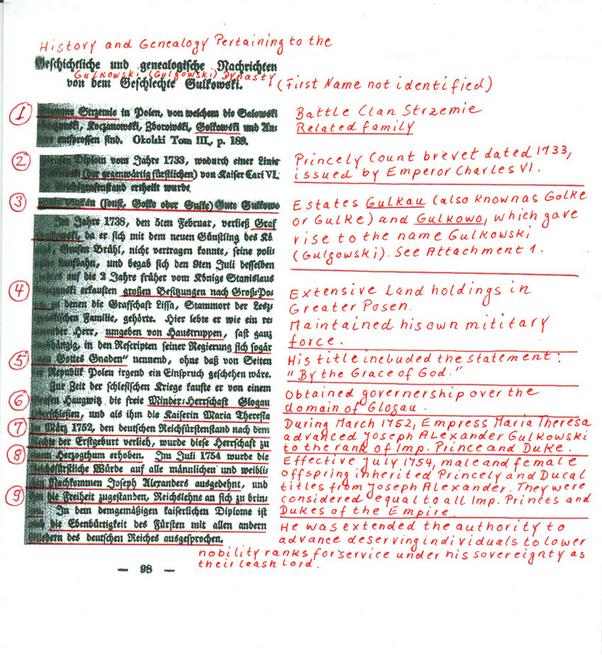 History and Genealogy Pertaining to the
Geschichtliche und genealogische Nachrichten
Gulkowski (Gulgowski) Dynasty
von dem Geschlechte Gulkowski.
(First Name not identified)
1
Strzemie in Polen, von welchem die Salowski
Koczanowski, Zborowski, Golkowski und An-
entsprossen sind. Okolski Tom III., p. 189.
Battle Clan Strzemie
Related family
2
Diplom vom Jahre 1733, wodurch einer Linie
(der gegenwärtig fürstlichen) von Kaiser Carl VI.
ertheilt wurde
Princely Count brevet dated 1733,
issued by Emperor Charles VI.
3
Golke oder Gulke) Gute Gulkowo
Im Jahre 1738, den 5ten Februar, verließ Graf
da er sich mit dem neuen Günstling des Kö-
Grafen Brühl, nicht vertragen konnte, seine poli-
Laufbahn, und begab sich den 8ten Juli desselben
auf die 2 Jahre früher vom Könige Stanislaus
Estates Gulkau (also known as Golke
or Gulke) and Gulkowo, which gave
rise to the name Gulkowski
(Gulgowski). See Attachment 1.
4
erkauften großen Besitzungen nach Groß-Po-
zu denen die Grafschaft Lissa, Stammort der Lesz-
Familie, gehörte. Hier lebte er wie ein re-
Herr, umgeben von Haustruppen, fast ganz
in den Rescripten seiner Regierung sich sogar
Extensive Land holdings in
Greater Posen.
Maintained his own military
force.
5
Gottes Gnaden" nennend, ohne daß von Seiten
Republik Polen irgend ein Einspruch geschehen wäre.
Zur Zeit der schlesischen Kriege kaufte er von einem
His title included the statement:
"By the Grace of God."
6
Haugwitz, die freie Minder-Herrschaft Glogau
und als ihm die Kaiserin Maria Theresia
Obtained governership over the
domain of Glogau.
7
März 1752, den deutschen Reichsfürstenstand nach dem
der Erstgeburt verlieh, wurde diese Herrschaft zu
During March 1752, Empress Maria Theresa
advanced Joseph Alexander Gulkowski
to the rank of Imp. Prince and Duke.
8
Herzogthum erhoben. Im Juli 1754 wurde die
Würde auf alle männlichen und weibli-
Nachkommen Joseph Alexanders ausgedehnt, und
Effective July 1754, male and female
offspring inherited Princely and Ducal
titles from Joseph Alexander. They were
considered equal to all Imp. Princes and
Dukes of the Empire.
9
die Freiheit zugestanden, Reichslehne an sich zu brin-
In dem demgemäßigen kaiserlichen Diplome ist
die Ebenbürtigkeit des Fürsten mit allen andern
des deutschen Reiches ausgesprochen.
He was extended the authority to
advance deserving individuals to lower
nobility ranks for service under his sovereignty as
their leash lord.
— 98 —